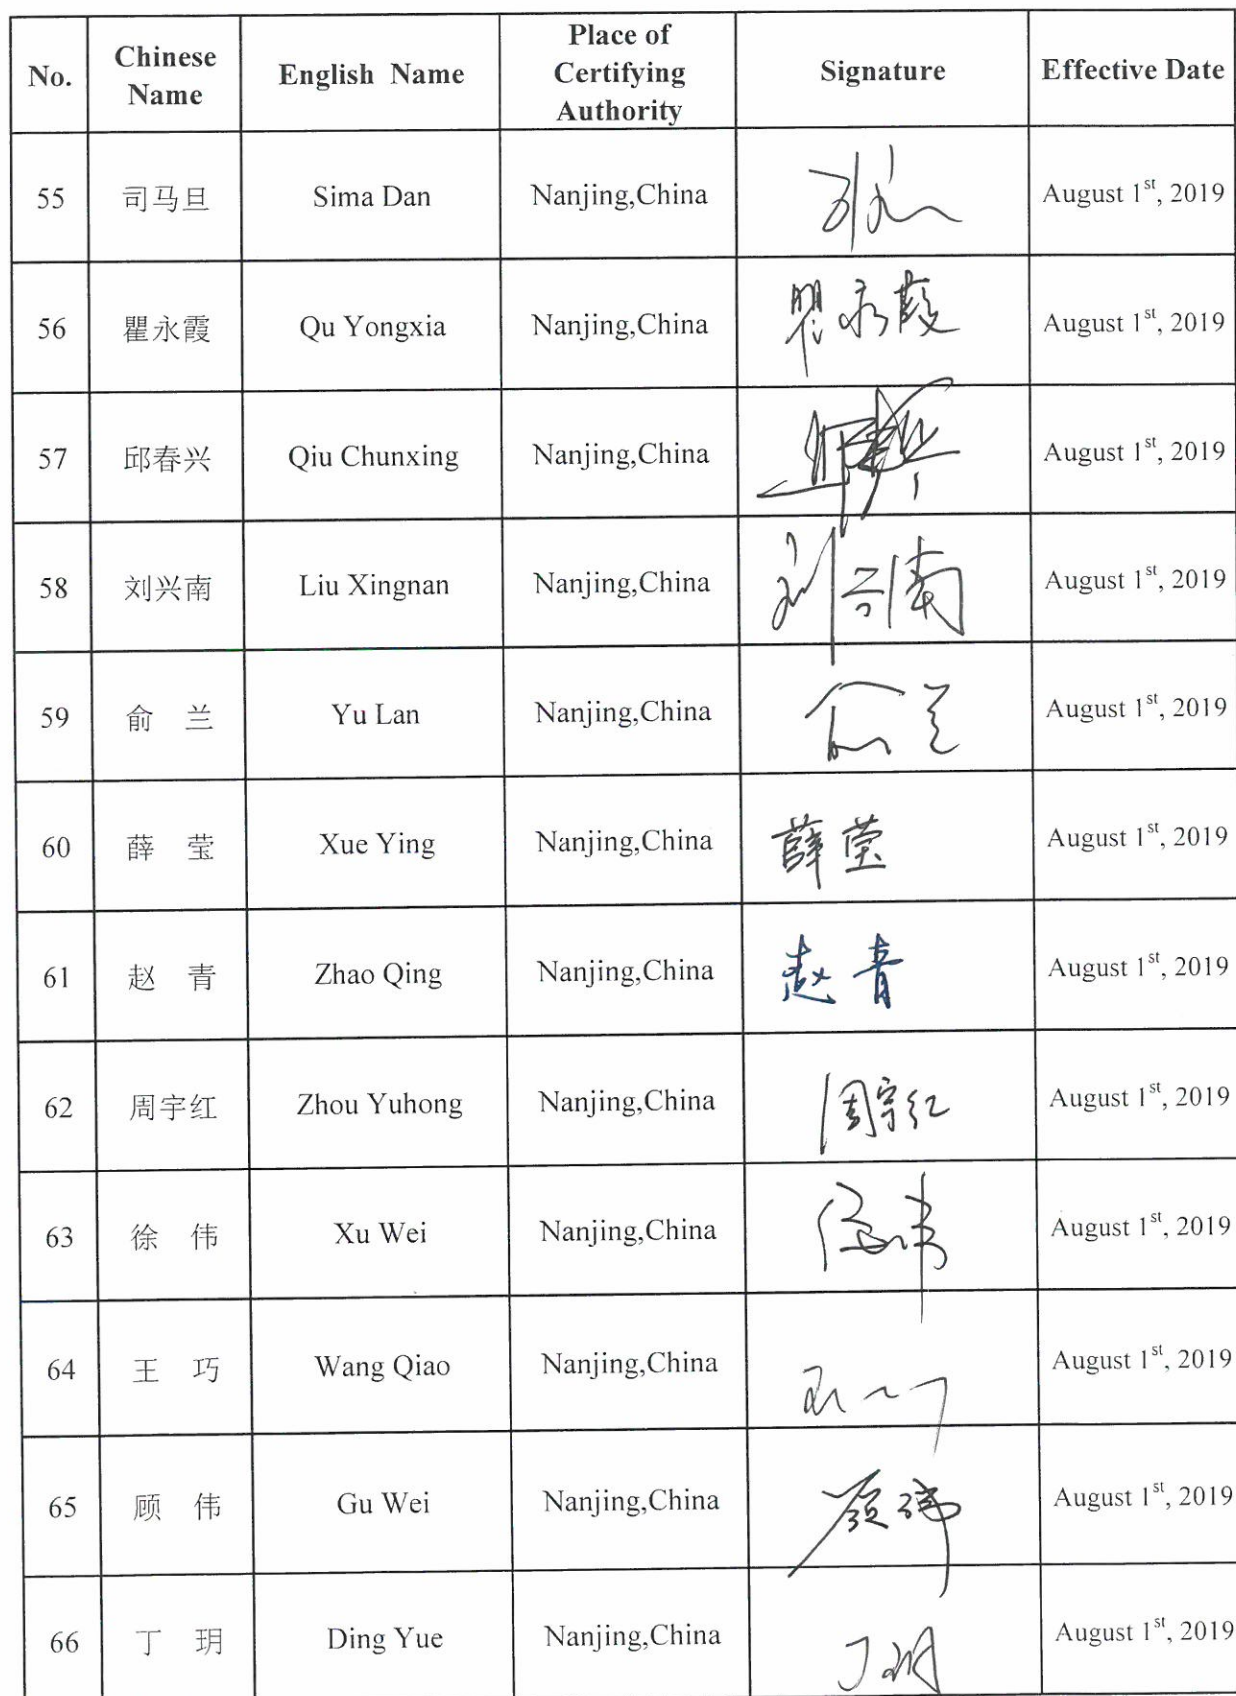 No. Chinese Name English Name Place of Certifying Authority Signature Effective Date
55 司马旦 Sima Dan Nanjing,China August 1st, 2019
56 瞿永霞 Qu Yongxia Nanjing,China 瞿永霞 August 1st, 2019
57 邱春兴 Qiu Chunxing Nanjing,China August 1st, 2019
58 刘兴南 Liu Xingnan Nanjing,China August 1st, 2019
59 俞 兰 Yu Lan Nanjing,China 俞兰 August 1st, 2019
60 薛 莹 Xue Ying Nanjing,China 薛莹 August 1st, 2019
61 赵 青 Zhao Qing Nanjing,China 赵青 August 1st, 2019
62 周宇红 Zhou Yuhong Nanjing,China 周宇红 August 1st, 2019
63 徐 伟 Xu Wei Nanjing,China 徐伟 August 1st, 2019
64 王 巧 Wang Qiao Nanjing,China August 1st, 2019
65 顾 伟 Gu Wei Nanjing,China 顾伟 August 1st, 2019
66 丁 玥 Ding Yue Nanjing,China 丁玥 August 1st, 2019